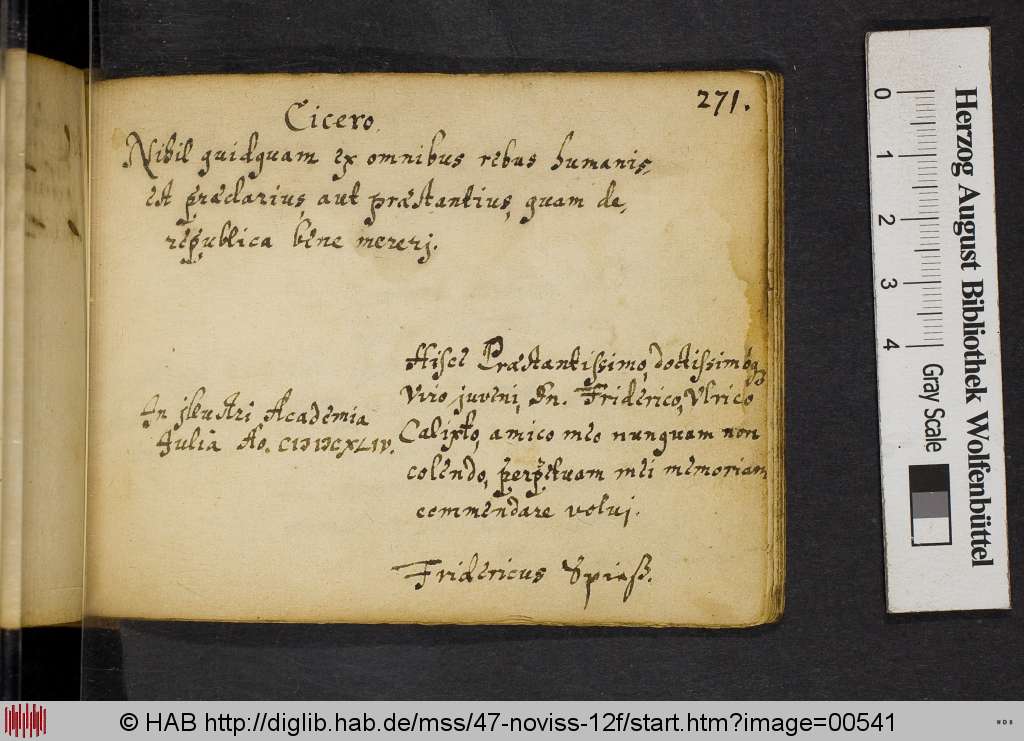 271.
Cicero.
Nihil quidquam ex omnibus rebus humanis,
est præclarius, aut præstantius, quam de,
republica bene mererj.
Hisce Præstantissimo, doctissimoq3
viro juveni, Dn. Friderico, Ulrico
Calixto, amico meo nunquam non
colendo, perpetuam mei memoriam
commendare voluj.
In jllustri Academia
Juliâ Ao. CIↃIↃCXLIV.
Fridericus Spieß.
0 1 2 3 4
Gray Scale
Herzog August Bibliothek Wolfenbüttel
© HAB http://diglib.hab.de/mss/47-noviss-12f/start.htm?image=00541
WDB